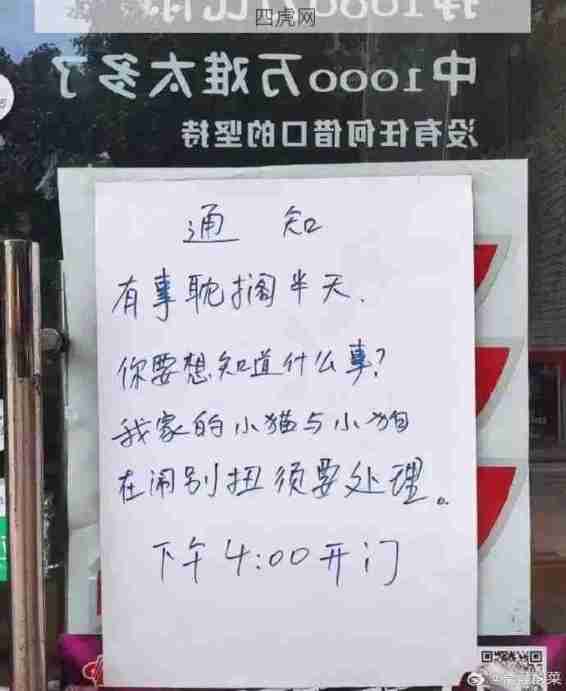 四虎网
中1000万难太多了
没有任何借口的坚持
通 知
有事耽搁半天.
你要想知道什么事?
我家的小猫与小狗
在闹别扭须要处理。
下午4:00开门